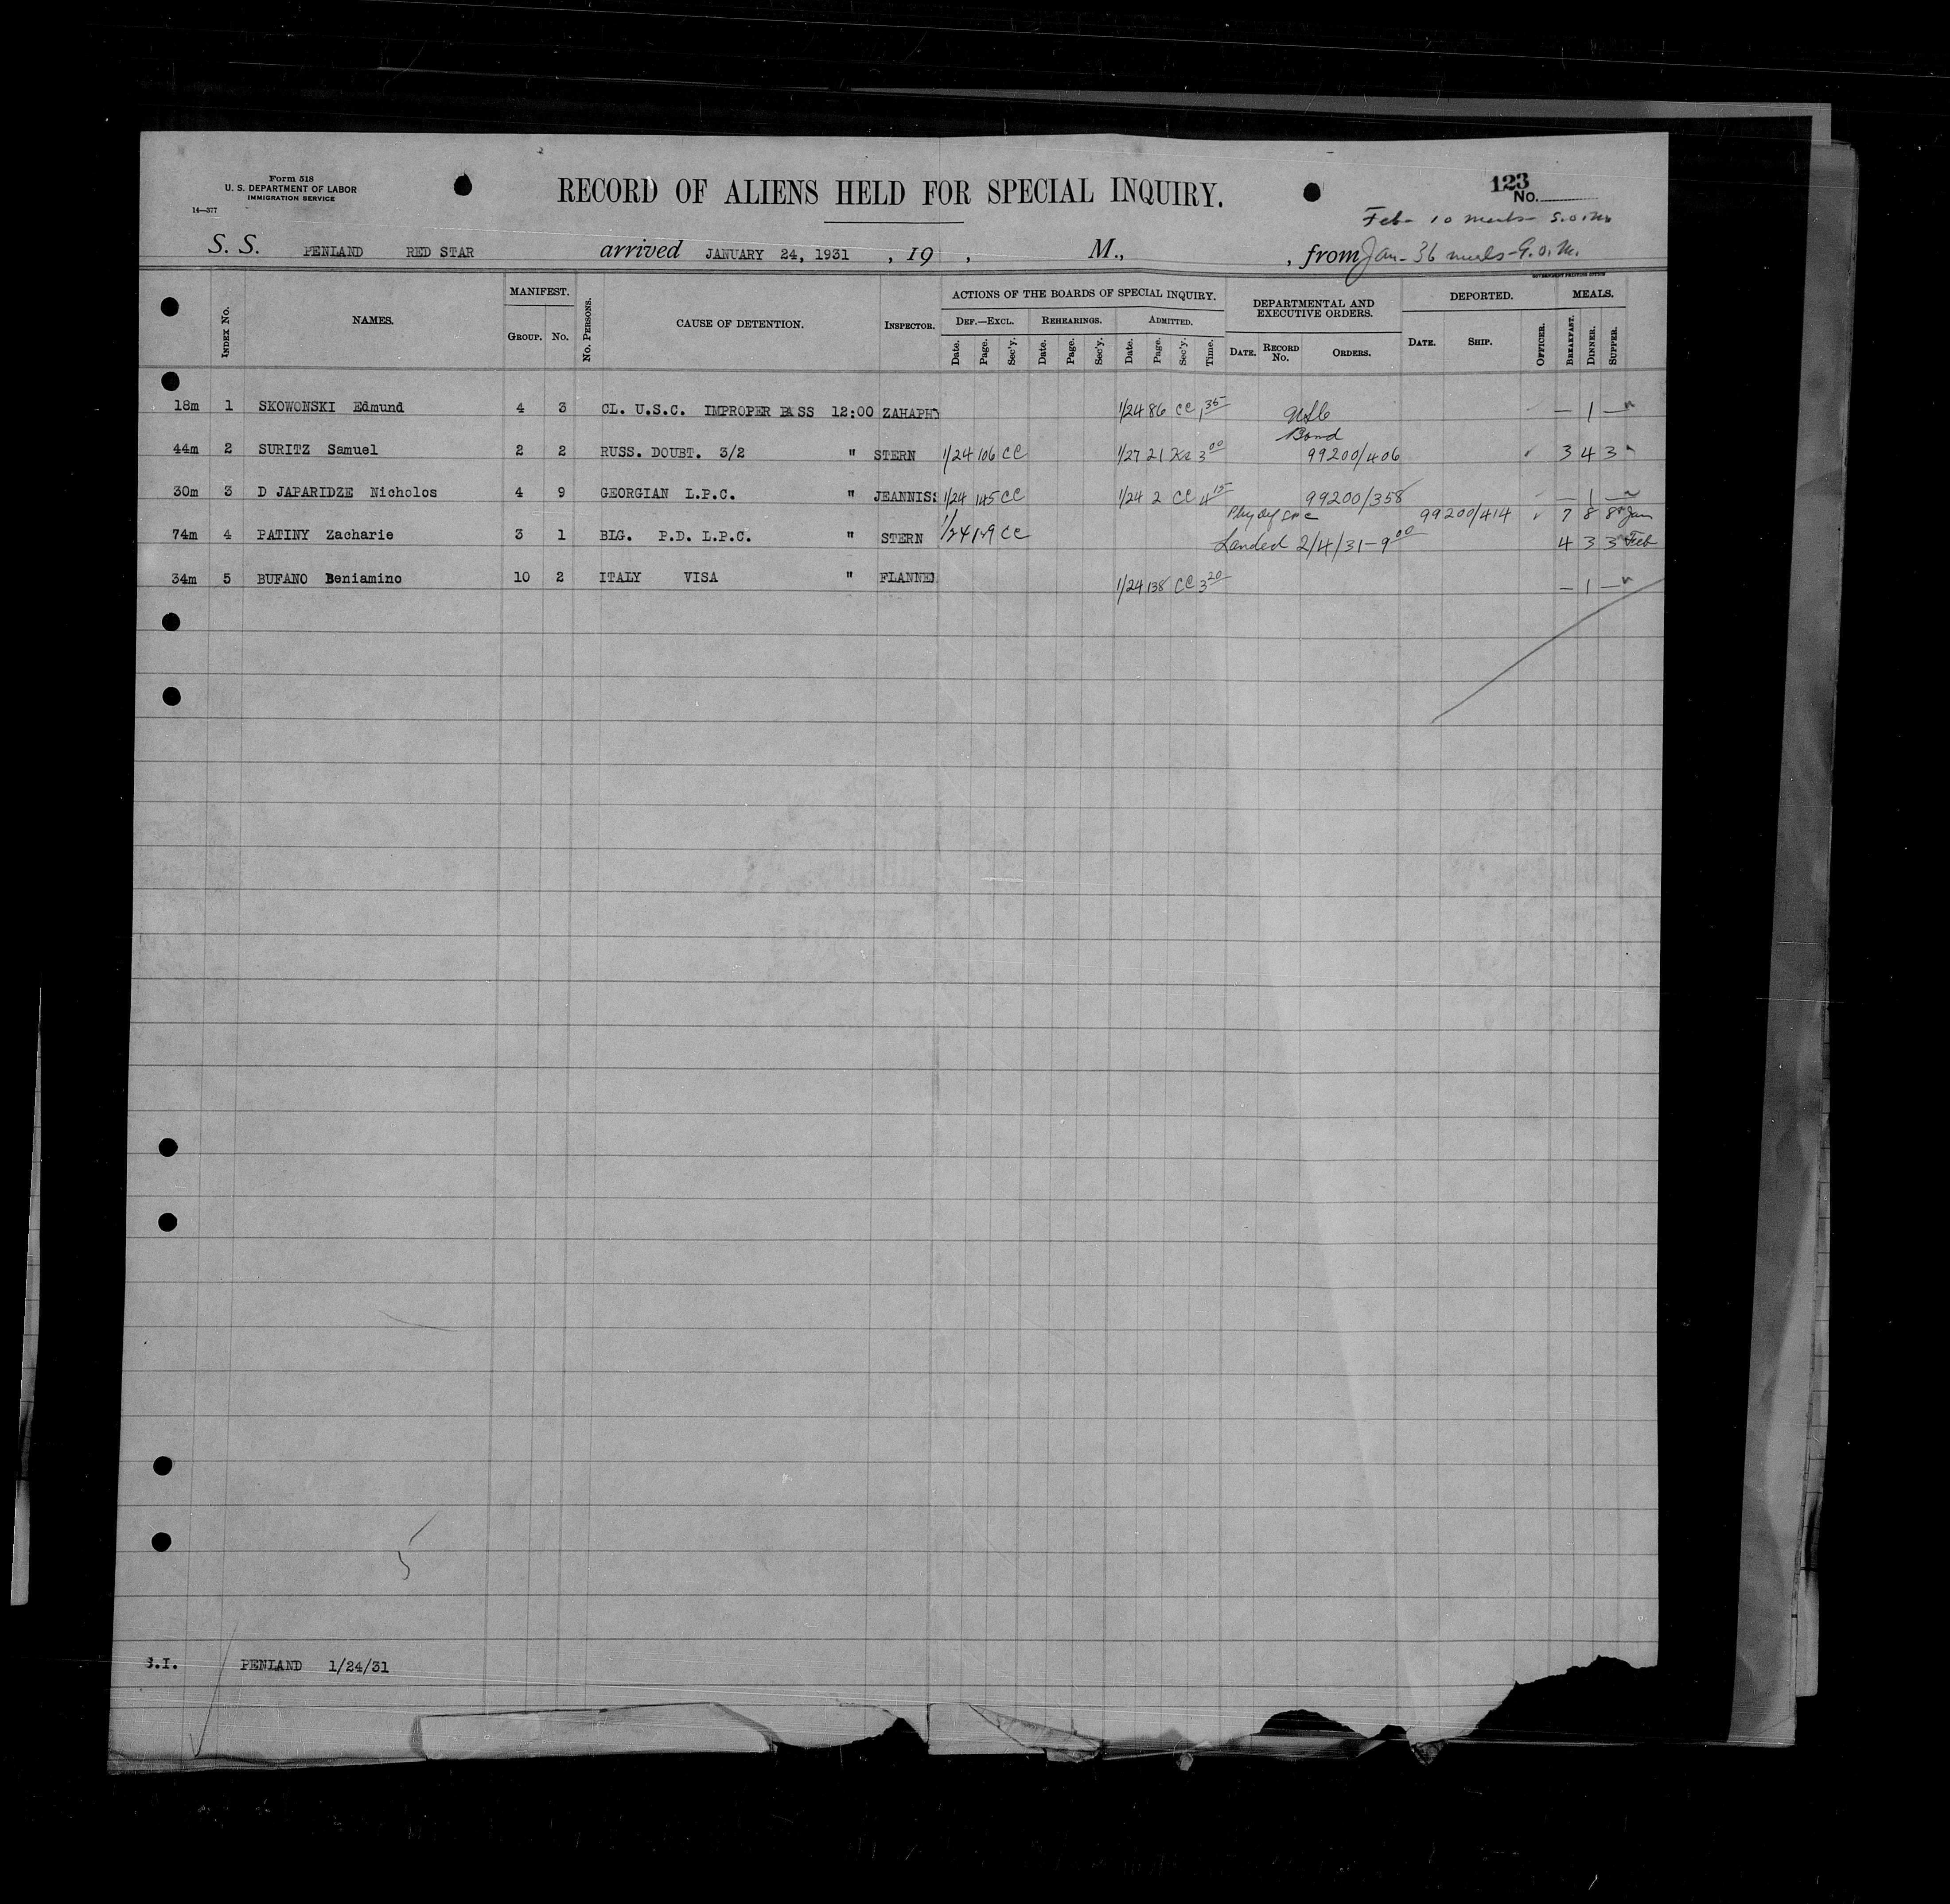 Form 518
U. S. DEPARTMENT OF LABOR
IMMIGRATION SERVICE
14—377
RECORD OF ALIENS HELD FOR SPECIAL INQUIRY.
123
No.
Feb- 10 meals-
S. S. PENLAND RED STAR arrived JANUARY 24, 1931 , 19 , M., , from Jan- 36 meals- G.O.M.
GOVERNMENT PRINTING OFFICE
INDEX No. NAMES. MANIFEST. GROUP. No. No. PERSONS. CAUSE OF DETENTION. INSPECTOR. ACTIONS OF THE BOARDS OF SPECIAL INQUIRY. DEF.—EXCL. Date. Page. Sec'y. REHEARINGS. Date. Page. Sec'y. ADMITTED. Date. Page. Sec'y. Time. DEPARTMENTAL AND EXECUTIVE ORDERS. DATE. RECORD No. ORDERS. DEPORTED. DATE. SHIP. OFFICER. MEALS. BREAKFAST. DINNER. SUPPER.
18m 1 SKOWONSKI Edmund 4 3 CL. U.S.C. IMPROPER PASS 12:00 ZAHAPHY 1/24 86 CC 1 35 — 1 —
Bond
44m 2 SURITZ Samuel 2 2 RUSS. DOUBT. 3/2 " STERN 1/24 106 CC 1/27 21 3 00 99200/406 3 4 3
30m 3 D JAPARIDZE Nicholos 4 9 GEORGIAN L.P.C. " JEANNISS 1/24 145 CC 1/24 2 CC 4 15 99200/358 — 1 —
99200/414 7 8 8 Jan
74m 4 PATINY Zacharie 3 1 BLG. P.D. L.P.C. " STERN 1/24 129 CC Landed 2/4/31-9 00 4 3 3 Feb
34m 5 BUFANO Beniamino 10 2 ITALY VISA " FLANNE 1/24 138 CC 3 20 — 1 —
5
S.I. PENLAND 1/24/31